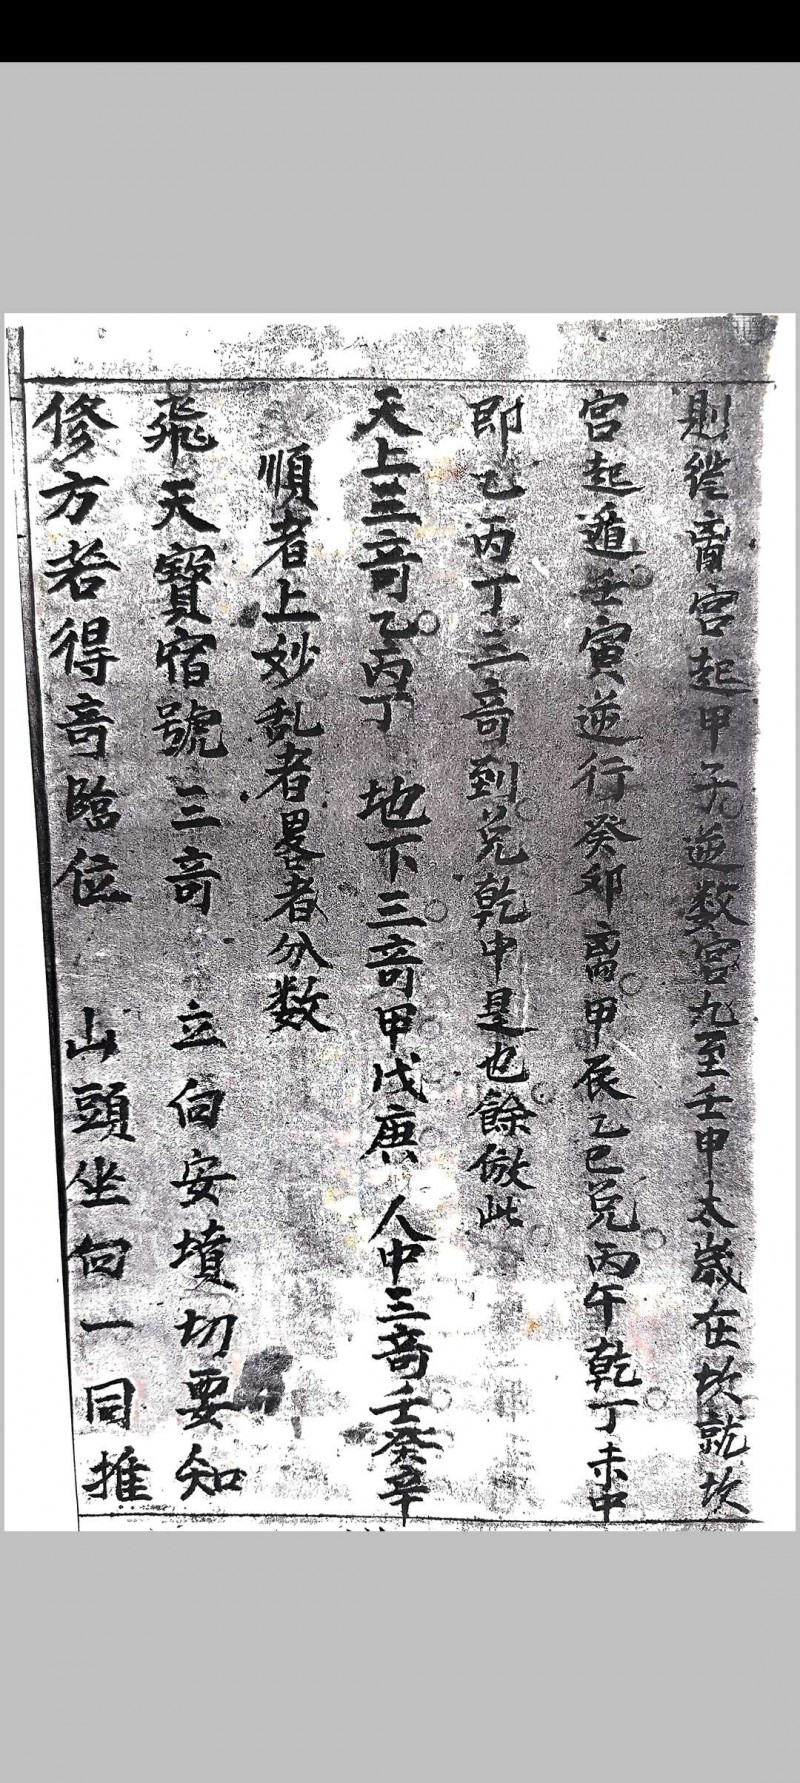 則從离宮起甲子逆数宮九至壬申太歲在坎就坎
宮起遁壬寅逆行癸卯离甲辰乙巳兑丙午乾丁未中
即乙丙丁三竒到兑乾中是也餘倣此
天上三竒乙丙丁 地下三竒甲戊庚 人中三竒壬癸辛
順者上妙乱者畧者分数
飛天寶宿號三竒 立向安墳切要知
修方若得竒臨位 山頭坐向一同推